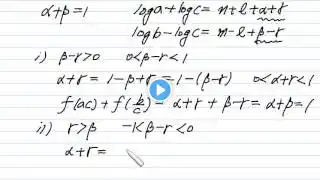 α+β=1
loga+logc = n+l+α+r
logb-logc = m-l+β-r
i) β-r>0 0<β-r<1
α+r = 1-β+r = 1-(β-r) 0<α+r<1
f(ac)+f(b/c) = α+r+β-r = α+β=1
ii) r>β -1<β-r<0
α+r=